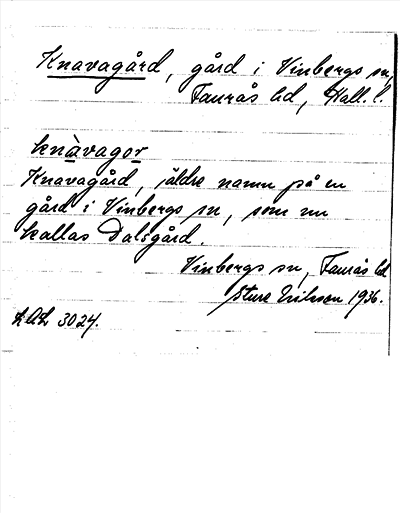 Knavagård, gård i Vinbergs sn,
Faurås hd, Hall. l.
knàvagor
Knavagård, äldre namn på en
gård i Vinbergs sn, som nu
kallas Dalsgård.
Vinbergs sn, Faurås hd
Sture Erikson 1936.
LAL 3024.